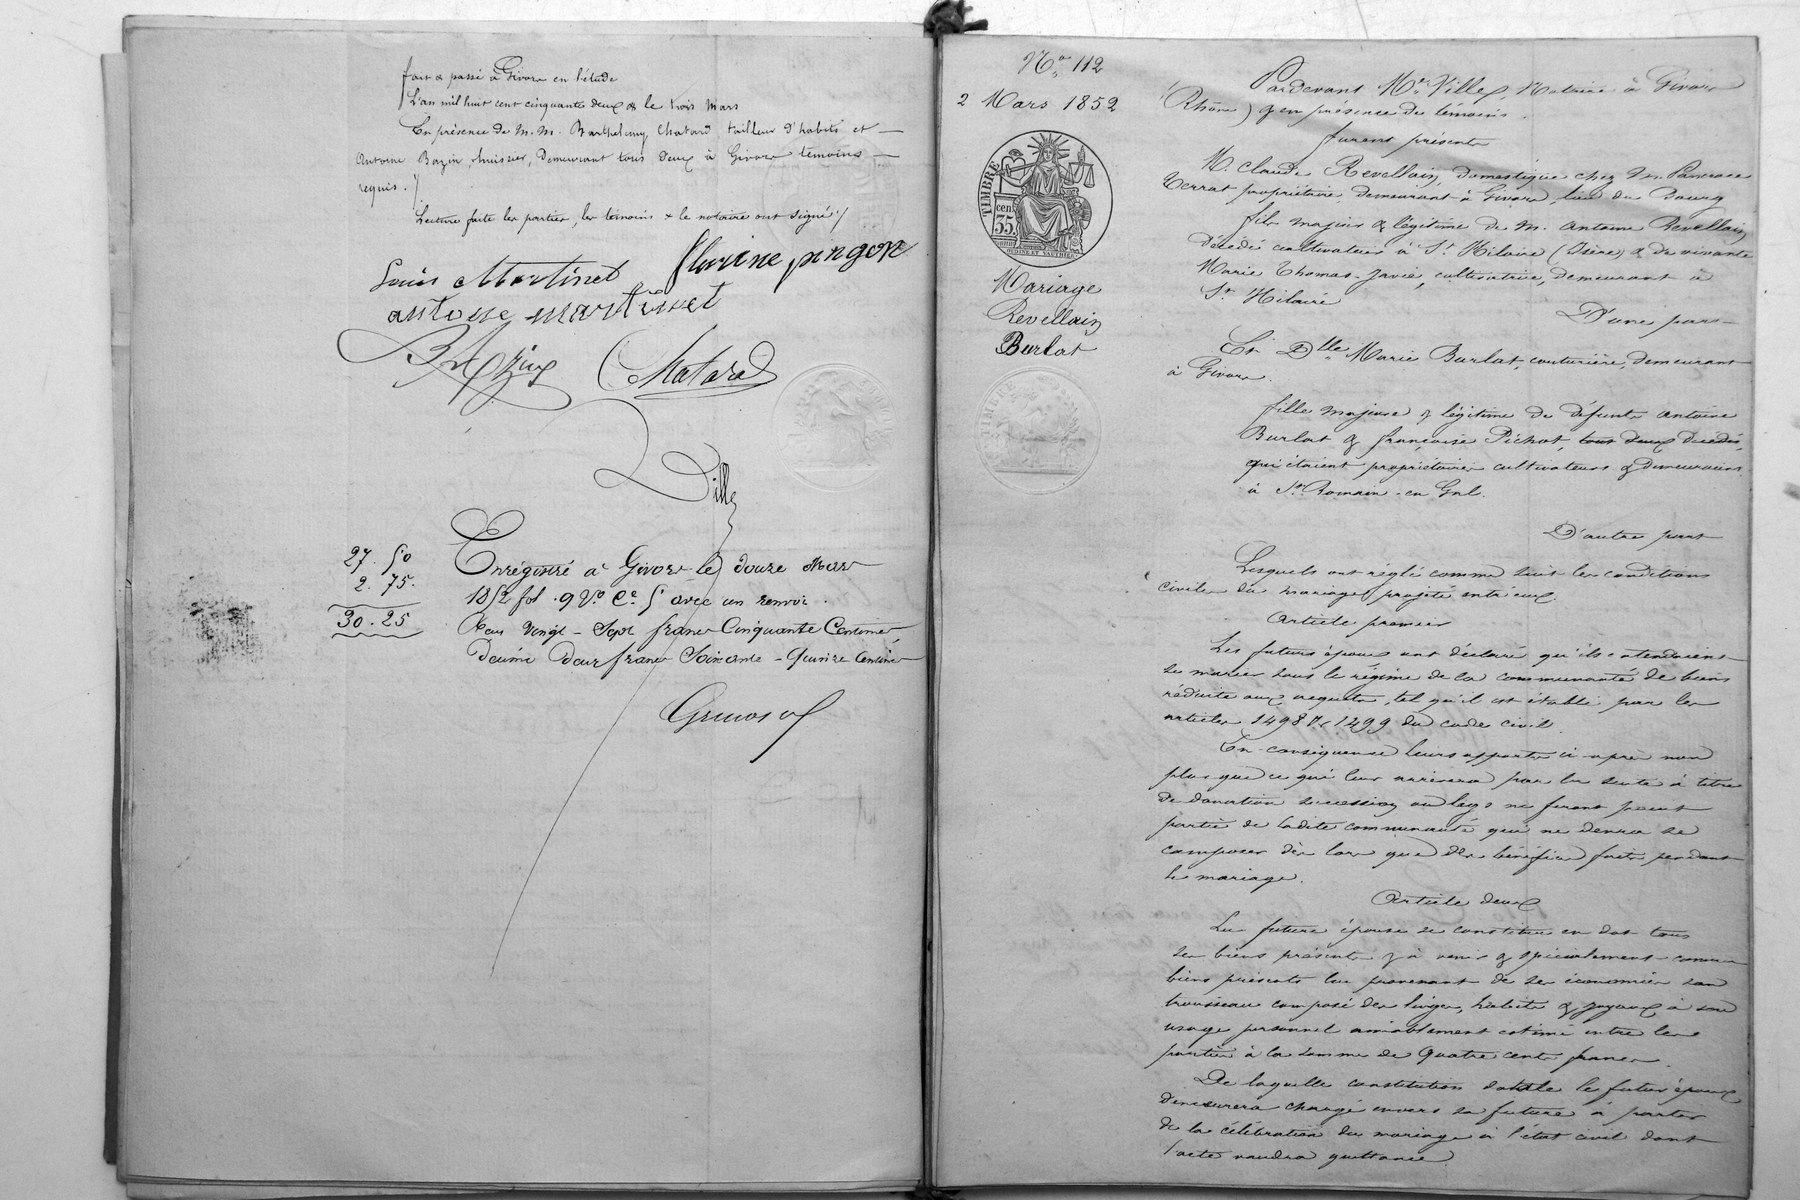 fait & passé à Givors en l'étude
L'an mil huit cent cinquante deux & le trois Mars
En présence de M.M. Barthelemy Chatard tailleur d'habits et
Antoine Bazin, huissier, Demeurant tous deux à Givors temoins
requis.
Lecture faite les parties, les temoins & le notaire ont signé
Louis Martinet florine pingon
antoine martinet
Bazin Chatard
Ville
27. 50
2. 75.
30. 25
Enrégistré à Givors le douze Mars
1852 fol. 9 Vo. Ce. 5 avec un renvoi.
Reçu Vingt-Sept francs Cinquante Centimes,
Décime Deux francs Soixante-Quinze Centimes
No. 112
2 Mars 1852
TIMBRE
cen.
35.
Mariage
Revellain
Burlat
Pardevant Me. Ville, Notaire à Givors
(Rhône) & en présence des témoins.
furent présents
M. Claude Revellain, domestique chez M. Pancrace
Terrat propriétaire, demeurant à Givors, lieu du Bourg
fils majeur & légitime de M. Antoine Revellain
décédé cultivateur à St. Hilaire (Isère) & de vivante
Marie Thomas-Javié, cultivatrice, demeurant à
St. Hilaire
D'une part
Et Dlle. Marie Burlat, couturière, demeurant
à Givors.
fille majeure & légitime de défunts Antoine
Burlat & françoise Pichot, tous deux décédés,
qui étaient propriétaires cultivateurs & demeurants
à St. Romain-en Gal.
D'autre part
Lesquels ont réglé comme suit les conditions
civiles du mariage projeté entr'eux.
Article premier
Les futurs époux ont déclaré qu'ils entendaient
se marier sous le régime de la communauté de biens
réduite aux acquets, tel qu'il est établi par les
articles 1498 & 1499 du code civil.
En conséquence leurs apports ci-après non
plus que ce qui leur arrivera par la suite à titre
de donation succession ou legs ne feront point
partie de ladite communauté qui ne devra se
composer dès lors que des bénéfices faits pendant
le mariage.
Article deux
La future épouse se constitue en dot tous
ses biens présents & à venir & spécialement comme
biens présents lui provenant de ses économies son
trousseau composé de linges, habits & joyaux à son
usage personnel amiablement estimé entre les
parties à la somme de Quatre cents francs.
De laquelle constitution dotale le futur époux
demeurera chargé envers sa future à partir
de la célébration du mariage à l'état civil dont
l'acte vaudra quittance.